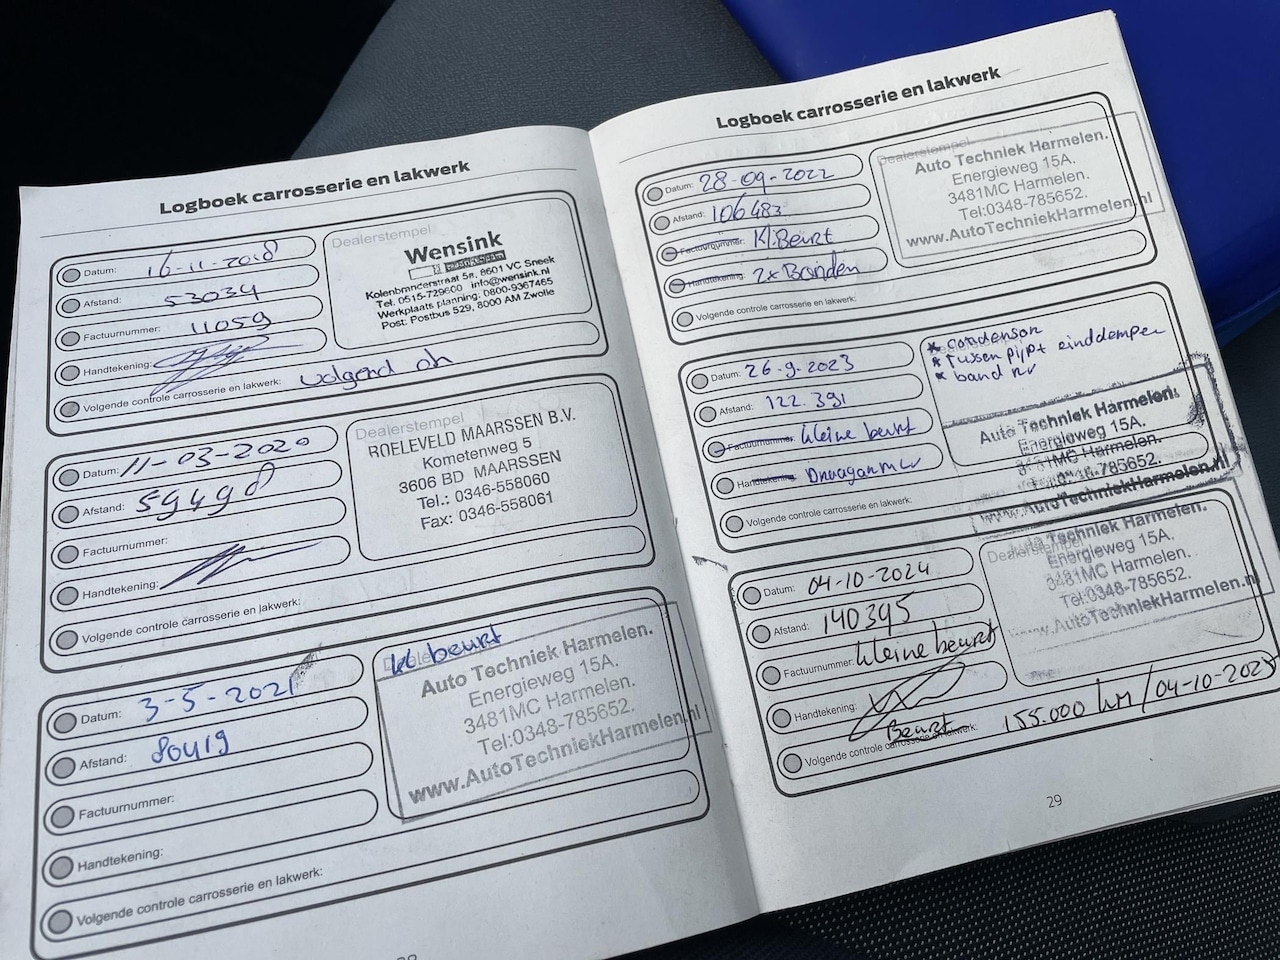 Logboek carrosserie en lakwerk
Datum: 16-11-2018
Afstand: 53034
Factuurnummer: 11059
Handtekening:
Volgende controle carrosserie en lakwerk: volgend oh
Dealerstempel
Wensink
Kolenbranderstraat 5a, 8601 VC Sneek
Tel. 0515-729600 info@wensink.nl
Werkplaats planning: 0800-9367465
Post: Postbus 529, 8000 AM Zwolle
Datum: 11-03-2020
Afstand: 59498
Factuurnummer:
Handtekening:
Volgende controle carrosserie en lakwerk:
Dealerstempel
ROELEVELD MAARSSEN B.V.
Kometenweg 5
3606 BD MAARSSEN
Tel.: 0346-558060
Fax: 0346-558061
Datum: 3-5-2021
Afstand: 80419
Factuurnummer:
Handtekening:
Volgende controle carrosserie en lakwerk:
kl beurt
Auto Techniek Harmelen.
Energieweg 15A.
3481MC Harmelen.
Tel:0348-785652.
www.AutoTechniekHarmelen.nl
Logboek carrosserie en lakwerk
Datum: 28-09-2022
Afstand: 106483
Factuurnummer: Kl. Beurt
Handtekening: 2x Banden
Volgende controle carrosserie en lakwerk:
Dealerstempel
Auto Techniek Harmelen.
Energieweg 15A.
3481MC Harmelen.
Tel:0348-785652.
www.AutoTechniekHarmelen.nl
Datum: 26-9-2023
Afstand: 122.391
Factuurnummer: kleine beurt
Handtekening: Draagarm
Volgende controle carrosserie en lakwerk:
* condensor
* tussen pijp + einddemper
* band
Auto Techniek Harmelen.
Energieweg 15A.
3481MC Harmelen.
Tel:0348-785652.
www.AutoTechniekHarmelen.nl
Datum: 04-10-2024
Afstand: 140395
Factuurnummer: kleine beurt
Handtekening:
Volgende controle carrosserie en lakwerk: Beurt 155.000 km / 04-10-2025
Dealerstempel
Auto Techniek Harmelen.
Energieweg 15A.
3481MC Harmelen.
Tel:0348-785652.
www.AutoTechniekHarmelen.nl
29